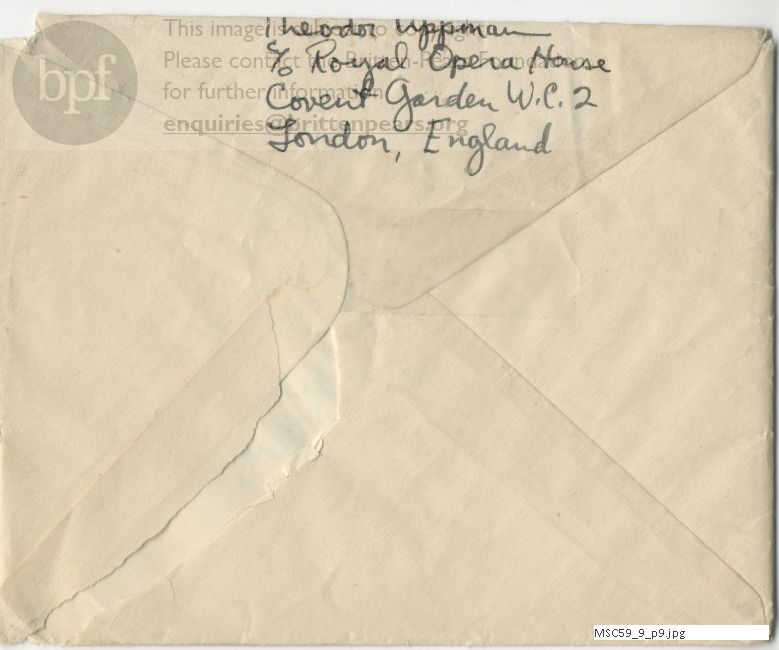 Theodor Uppman
c/o Royal Opera House
Covent Garden W.C. 2
London, England
bpf
This image is
Please contact the Britten-Pears
for further information
enquiries@brittenpears.org
MSC59_9_p9.jpg